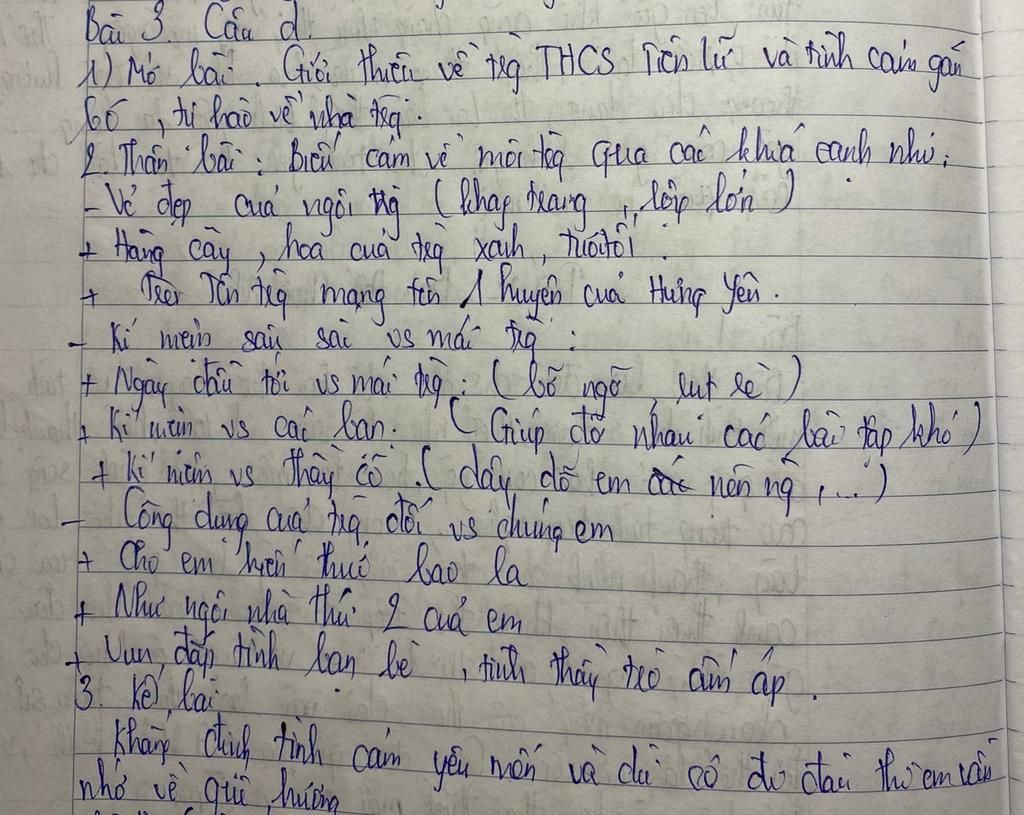 Bài 3. Câu d:
1) Mở bài. Giới thiệu về trg THCS Tiên lữ và tình cảm gắn
bó, tự hào về nhà trg.
2. Thân bài: Biểu cảm về mái trg qua các khía cạnh như:
- Vẻ đẹp của ngôi trg (khag trang, lớp lớn)
+ Hàng cây, hoa của trg xanh, tươi tốt.
+ Tên trg mang tên 1 huyện của Hưng Yên.
- Kỉ niệm sâu sắc vs mái trg:
+ Ngày đầu tới vs mái trg: (bỡ ngỡ, rụt rè)
+ Kỉ niệm vs các bạn: (Giúp đỡ nhau các bài tập khó)
+ Kỉ niệm vs thầy cô. (dạy dỗ em nên ng, ...)
- Công dụng của trg đối vs chúng em
+ Cho em kiến thức bao la
+ Như ngôi nhà thứ 2 của em
+ Vun đắp tình bạn bè, tình thầy trò ấm áp.
3. Kết bài
Khẳng định tình cảm yêu mến và dù có đi đâu thì em vẫn
nhớ về quê hương